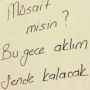 Müsait
misin ?
Bu gece aklım
Sende kalacak